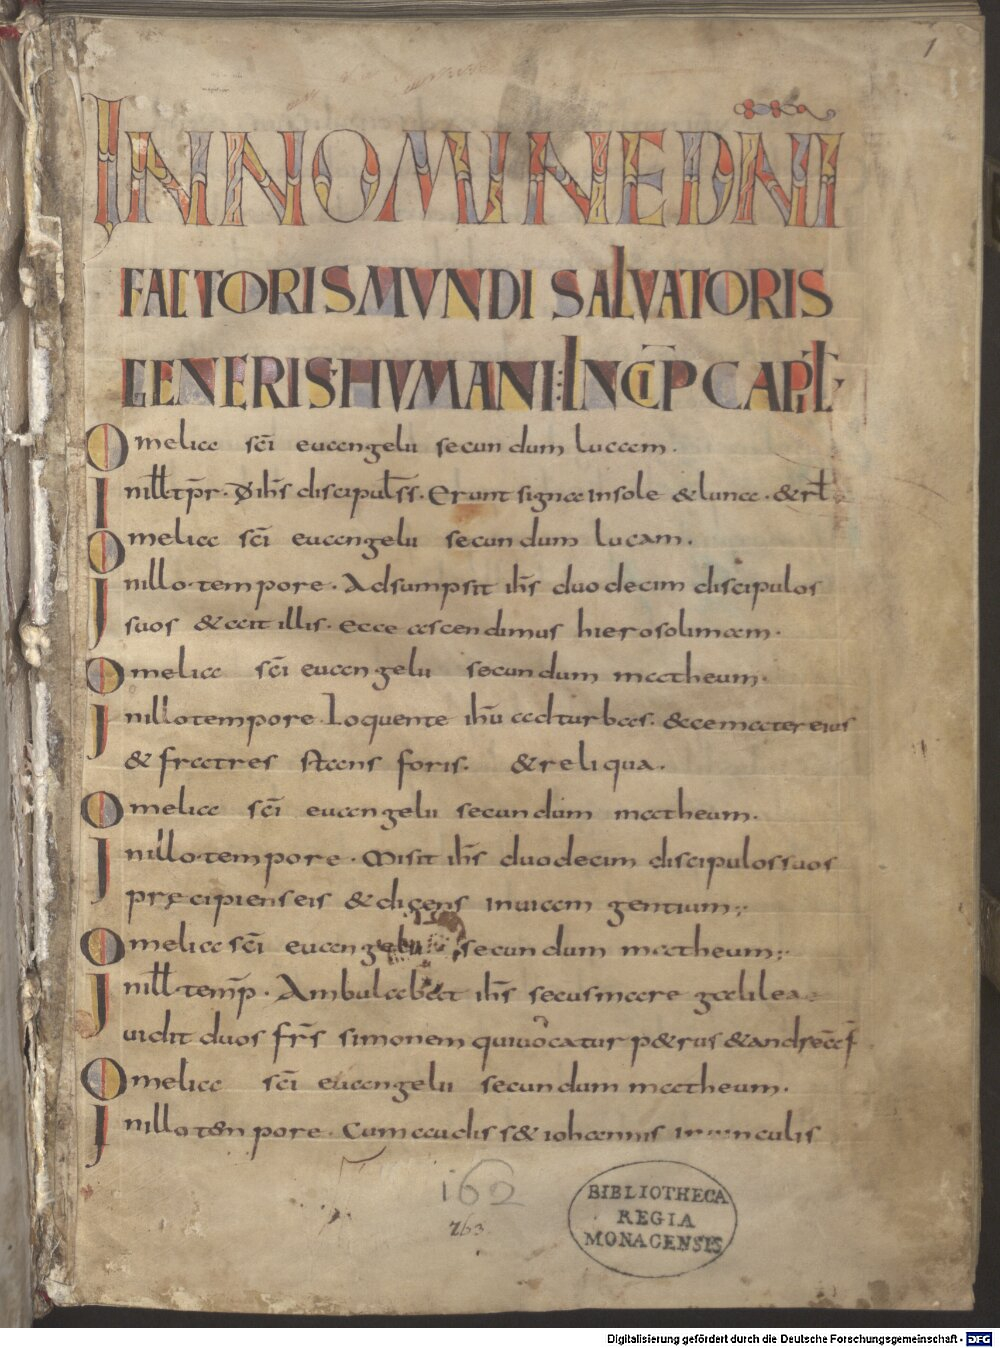 1
IN NOMINE DNI
FACTORIS MUNDI SALVATORIS
GENERIS HUMANI INCIP CAPIT
Omelia sci euangelii secundum lucam.
In ill tpr. dx ihs discipul ss. Erunt signa in sole & luna. & rl
Omelia sci euangelii secundum lucam.
In illo tempore. Adsumpsit ihs duodecim discipulos
suos & ait illis. ecce ascendimus hierosolimam.
Omelia sci euangelii secundum matheum.
In illo tempore. Loquente ihu ad turbas. & ecce mater eius
& fratres stans foris. & reliqua.
Omelia sci euangelii secundum matheum.
In illo tempore. Misit ihs duodecim discipulos suos
precipiens eis & dicens in uiam gentium;
Omelia sci euangelii secundum matheum;
In ill temp. Ambulabat ihs secus mare galilea
uidit duos frs simonem qui uocatur p&rus & andrea f
Omelia sci euangelii secundum matheum.
In illo tempore. Cum audiss& iohannis in uinculis
162
263
BIBLIOTHECA
REGIA
MONACENSIS
Digitalisierung gefördert durch die Deutsche Forschungsgemeinschaft - DFG